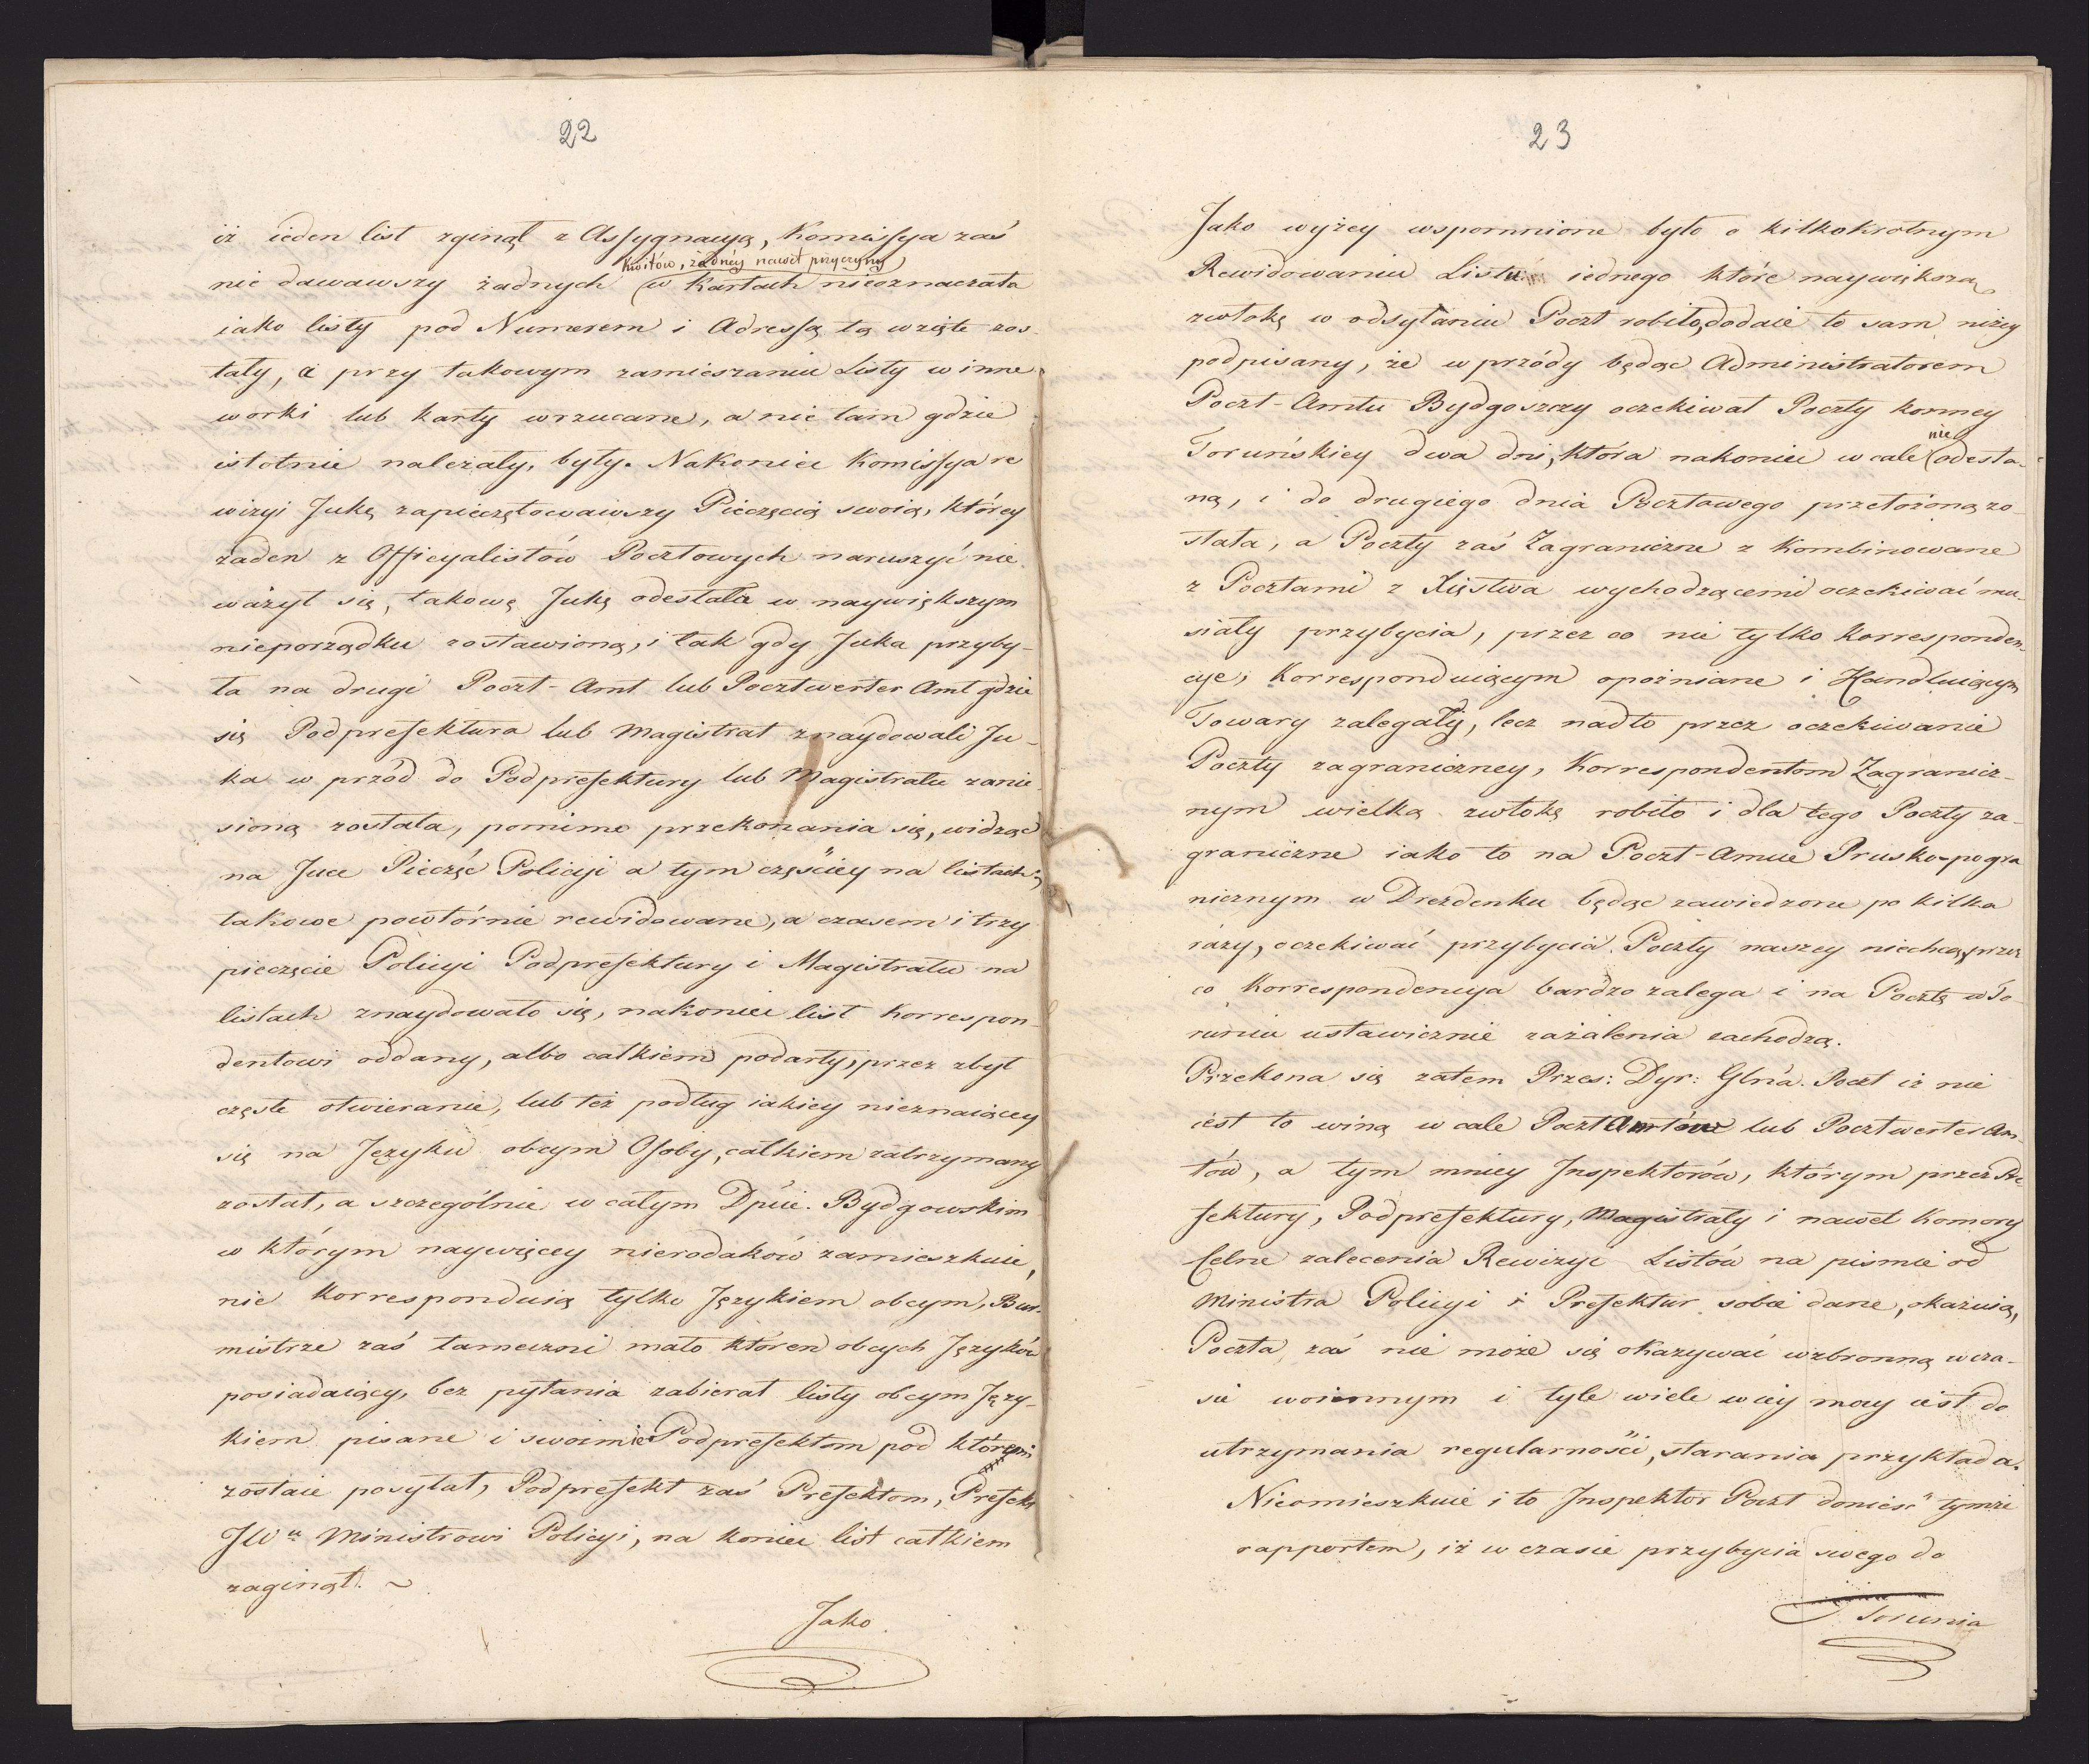 22
iż ieden list zginął z Assygnacyą, Komissya zaś
kwitów, żadnéy nawet przyczyny
nie dawawszy żadnych w Kartach nieoznaczała
iako listy pod Numerem i Adressą tą wzięte zos-
tały, a przy takowym zamieszaniu Listy w inne
worki lub karty wrzucane, a nie tam gdzie
istotnie należały, były. Nakoniec Komissya re
wizyi Jukę zapieczętowawszy Pieczęcią swoią, którey
żaden z Officyalistów Pocztowych naruszyć nie
ważył się, takowę Jukę odesłała w naywiększym
nieporządku zostawioną, i tak gdy Juka przyby-
ła na drugi Poczt-Amt lub Pocztwerter Amt gdzie
się Podprefektura lub Magistrat znaydowali Ju-
ka w przód do Podprefektury lub Magistratu zanie
sioną została, pomimo przekonania się, widząc
na Juce Pieczęć Policyi a tym częściey na listach,
takowe powtórnie rewidowane, a czasem i trzy
pieczęcie Policyi Podprefektury i Magistratu na
listach znaydowało się, nakoniec list korrespon-
dentowi oddany, albo całkiem podarty, przez zbyt
częste otwieranie, lub też podług iakiey nieznaiącey
się na Języku obcym Osoby, całkiem zatrzymany
został, a szczególnie w całym Dpcie. Bydgowskim
w którym naywięcey nierodaków zamieszkuie,
nie korresponduią tylko Językiem obcym, Bur-
mistrze zaś tameczni mało któren obcych Języków
posiadaiący, bez pytania zabierał listy obcym Języ-
kiem pisane i swoimie Podprefektom pod któremi
zostaie posyłał, Podprefekt zaś Prefektom, Prefekt
JWu Ministrowi Policyi, na koniec list całkiem
zaginął.
Jako
23
Jako wyżey wspomnione było o kilkokrotnym
Rewidowaniu Listu iednego które naywiększą
zwłokę w odsyłaniu Poczt robiło, dodaie to sam niżey
podpisany, że w przódy będąc Administratorem
Poczt-Amtu Bydgoszczy oczekiwał Poczty konney
nie
Toruńskiey dwa dni, która nakoniec w cale odesła-
ną, i do drugiego dnia Pocztowego przełożoną zo
stała, a Poczty zaś Zagraniczne z kombinowane
z Pocztami z Xięstwa wychodzącemi oczekiwać mu-
siały przybycia, przez co nie tylko korresponden-
cye, Korresponduiącym opoźniane i Handluiącym
Towary zalegały, lecz nadto przez oczekiwanie
Poczty zagraniczney, Korrespondentom Zagranicz-
nym wielką zwłokę robiło i dla tego Poczty za-
graniczne iako to na Poczt-Amcie Prusko-pogra
nicznym w Drezdenku będąc zawiedzone po kilka
rázy, oczekiwać przybycia Poczty naszey niechcą, przez
co Korrespondencya bardzo zalega i na Pocztę w To-
runiu ustawicznie zażalenia zachodzą.
Przekona się zatem Przes: Dyr: Glna. Poczt iż nie
iest to winą w cale PocztAmtów lub PocztwerterAm-
tów, a tym mniey Inspektorów, którym przez Pre
fektury, Podprefektury, Magistraty i nawet Komory
Celne zalecenia Rewizyi Listów na pismie od
Ministra Policyi i Prefektur sobie dane, okazuią,
Poczta zaś nie może się okazywać wzbronną w cza-
sie woiennym i tyle wiele w iey mocy iest do
utrzymania regularności, starania przykłada.
Nieomieszkuie i to Inspektor Poczt donieść tymże
rapportem, iż w czasie przybycia swego do
Torunia